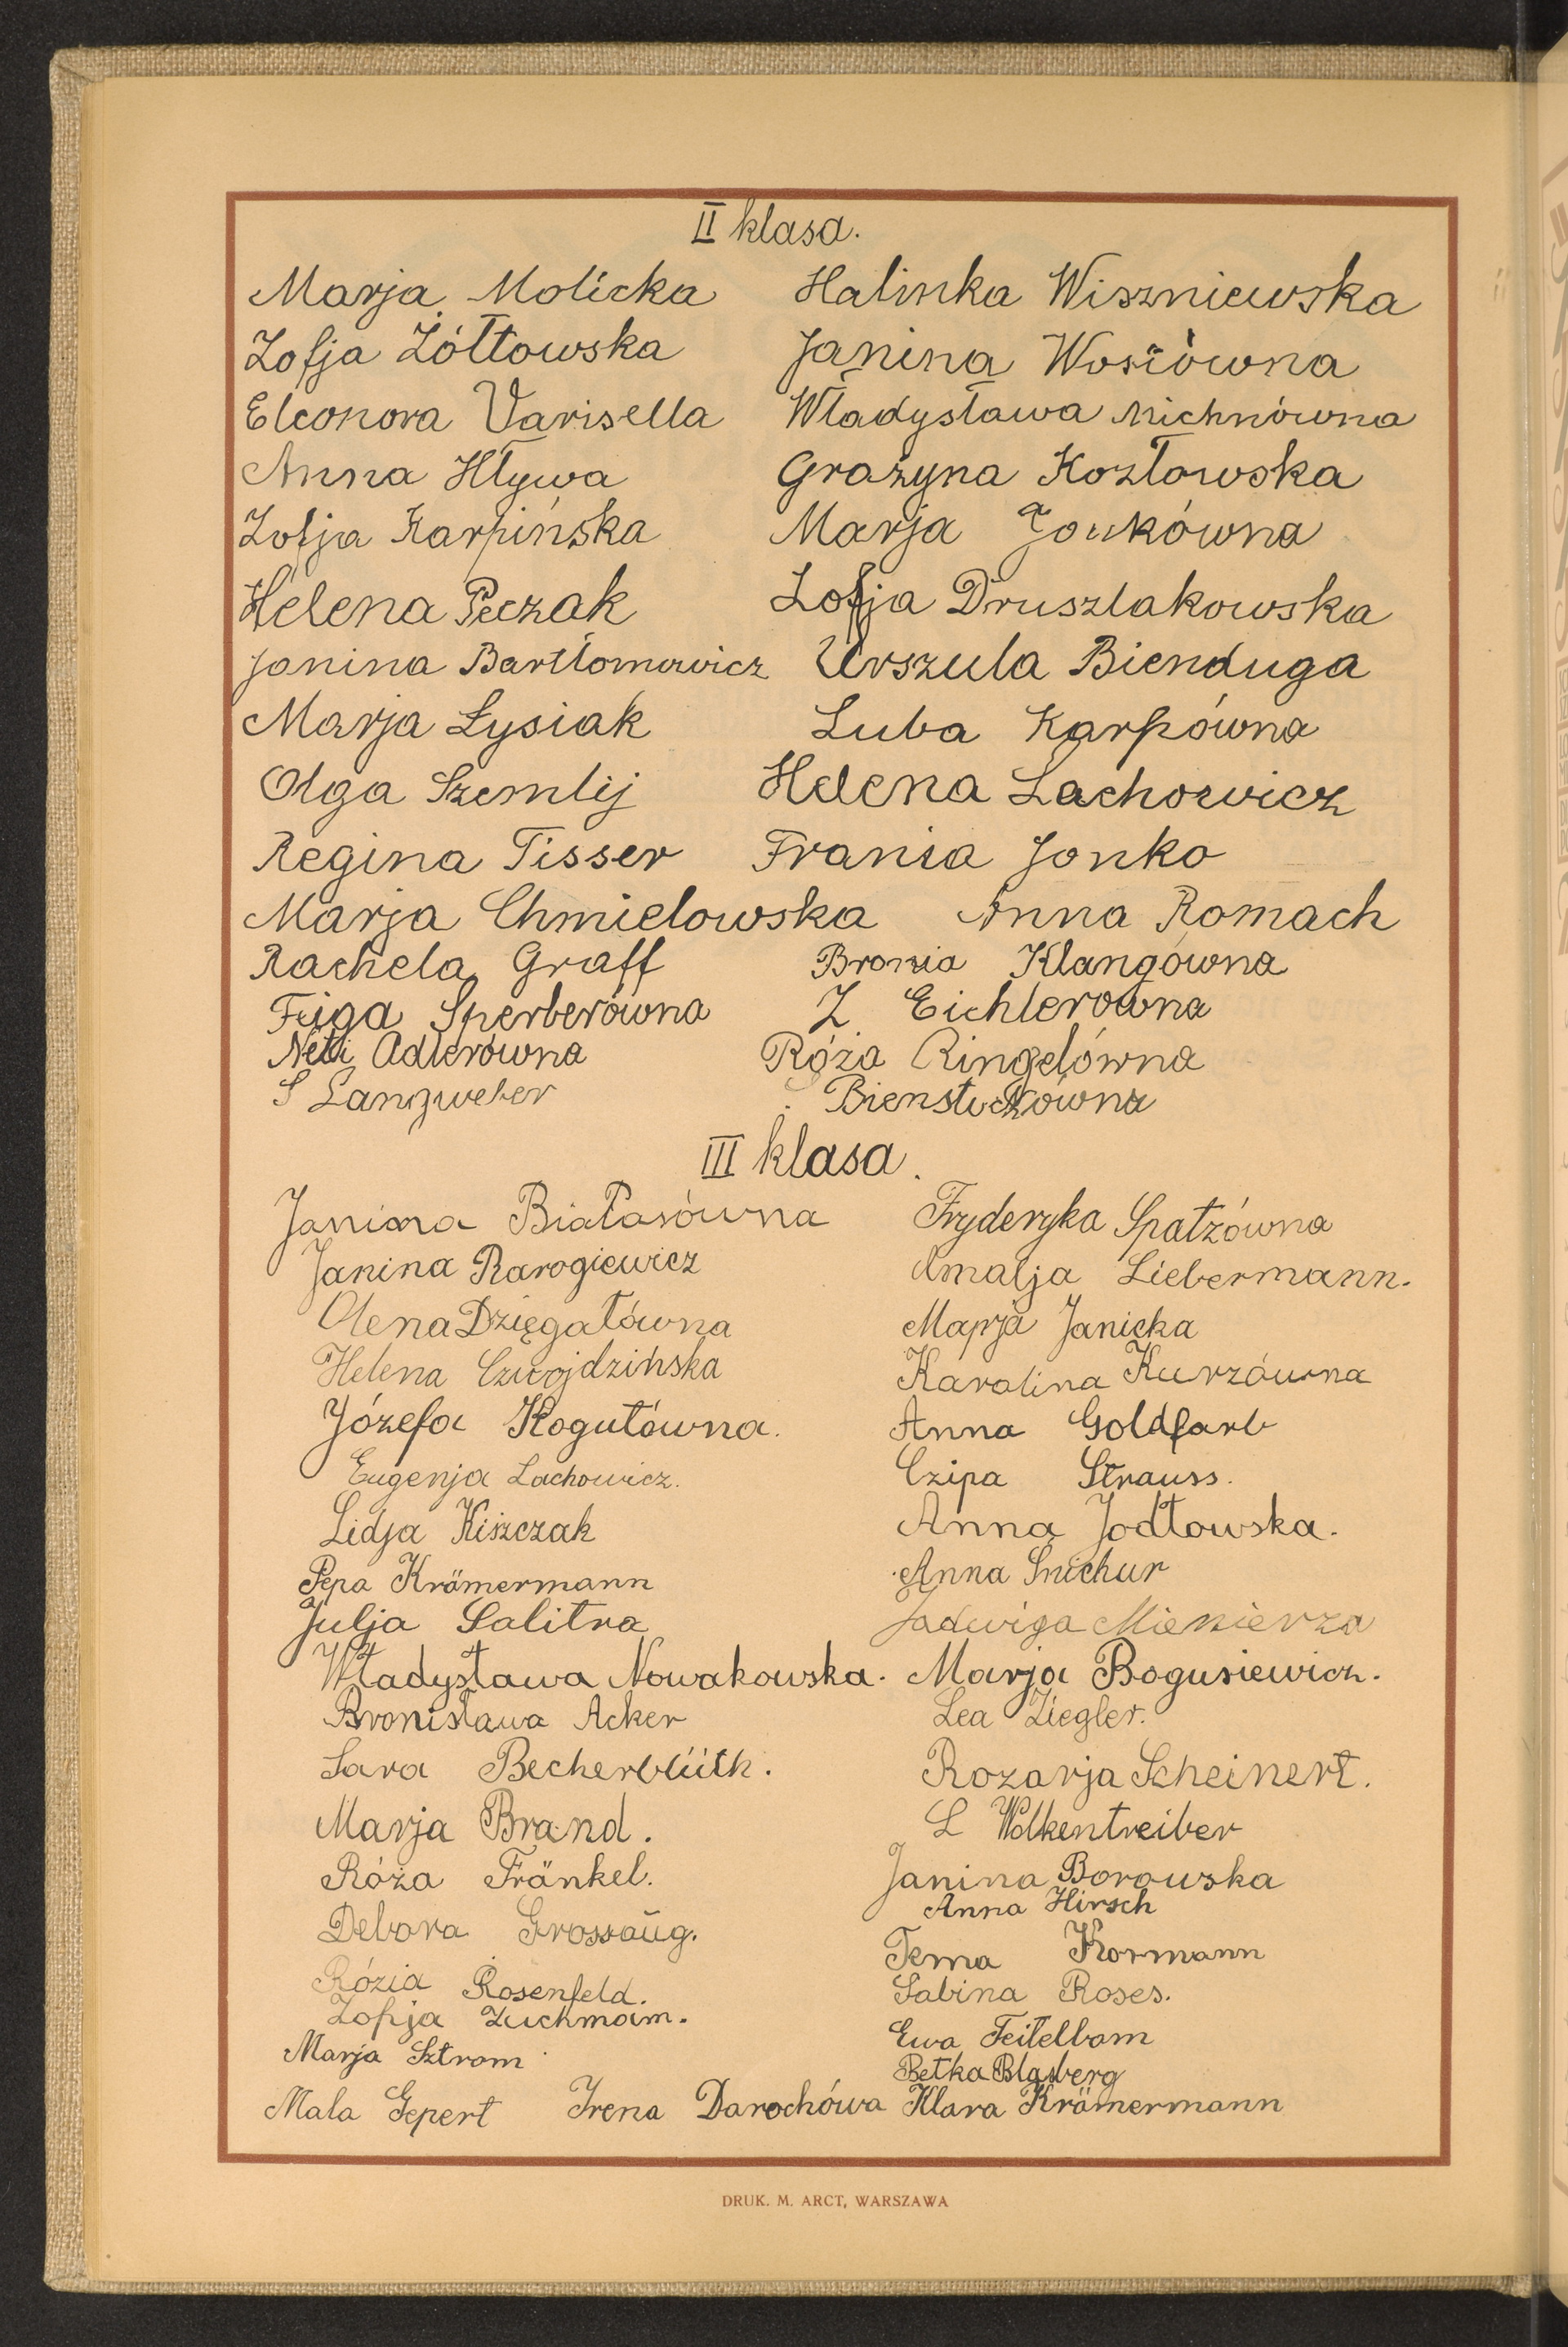 II klasa.
Marja Molicka Halinka Wiszniewska
Zofja Żółtowska Janina Wosiówna
Eleonora Varisella Władysława Michnówna
Anna Hływa Grażyna Kozłowska
Zofja Karpińska Marja
Helena Peczak Zofja Druszlakowska
Janina Bartłomowicz Urszula Bienduga
Marja Łysiak Luba Karpówna
Olga Szemlij Helena Lachowicz
Regina Tisser Frania Jonko
Marja Chmielowska Anna Romach
Rachela Graff Bronia Klangówna
Feiga Sperberówna Z Eichlerówna
Neti Adlerówna Róża Ringelówna
S Langweber Bienstockówna
III klasa.
Janina Białasówna Fryderyka Spatzówna
Janina Rarogiewicz Amalja Liebermann.
Olena Dzięgałówna Marja Janicka
Helena Czwojdzińska Karolina Kurzówna
Józefa Kogutówna. Anna Goldfarb
Eugenja Lachowicz. Czipa Strauss.
Lidja Kiszczak Anna Jodłowska.
Pepa Krämermann Anna Śnichur
Julja Salitra Jadwiga Mienierza
Władysława Nowakowska. Marja Bogusiewicz.
Bronisława Acker Lea Ziegler.
Sara Becherblüth. Rozarja Scheinert.
Marja Brand. L Wolkentreiber
Róża Fränkel. Janina Borowska
Anna Hirsch
Debora Grossaug. Tema Kormann
Rózia Rosenfeld. Sabina Roses.
Zofja Zuchmam. Ewa Feitelbam
Marja Sztrom Betka Blasberg
Mala Gepert Irena Darochówa Klara Krämermann
DRUK. M. ARCT, WARSZAWA